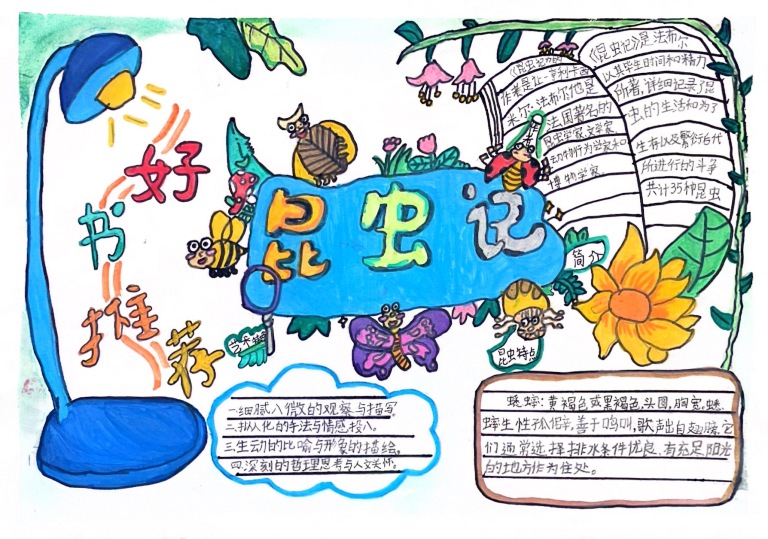 好
书
推
荐
昆虫记
作者
《昆虫记》的
作者是让·亨利卡西
米尔·法布尔他是
法国著名的
昆虫学家,文学家
动物行为学家和
博物学家.
《昆虫记》是法布尔
以其毕生时间和精力
所著,详细记录了昆
虫的生活和为了
生存以及繁衍后代
所进行的斗争
共计35种昆虫
简介
艺术特色
昆虫特点
一.细腻入微的观察与描写
二.拟人化的手法与情感投入。
三.生动的比喻与形象的描绘。
四.深刻的哲理思考与人文关怀。
蟋蟀:黄褐色或黑褐色,头圆,胸宽,蟋
蟀生性孤僻,善于鸣叫,歌声出自翅膀,它
们通常选择排水条件优良,有充足阳光
的地方作为住处。